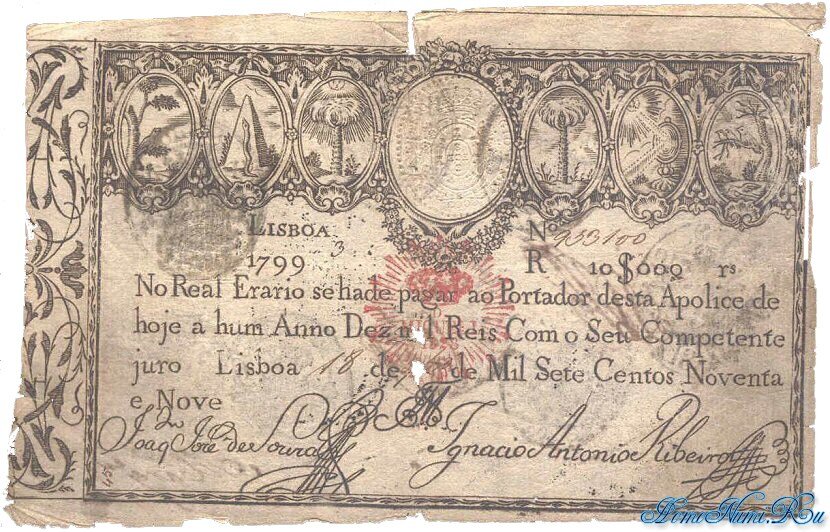 LISBOA Nº 933100
3
1799 R 10$000 rs
No Real Erario se ha de pagar ao Portador desta Apolice de
hoje a hum Anno Dez mil Reis Com o Seu Competente
juro Lisboa 18 de de Mil Sete Centos Noventa
e Nove
Joaq José de Souza Ignacio Antonio Ribeiro
45
HomoNumi.Ru